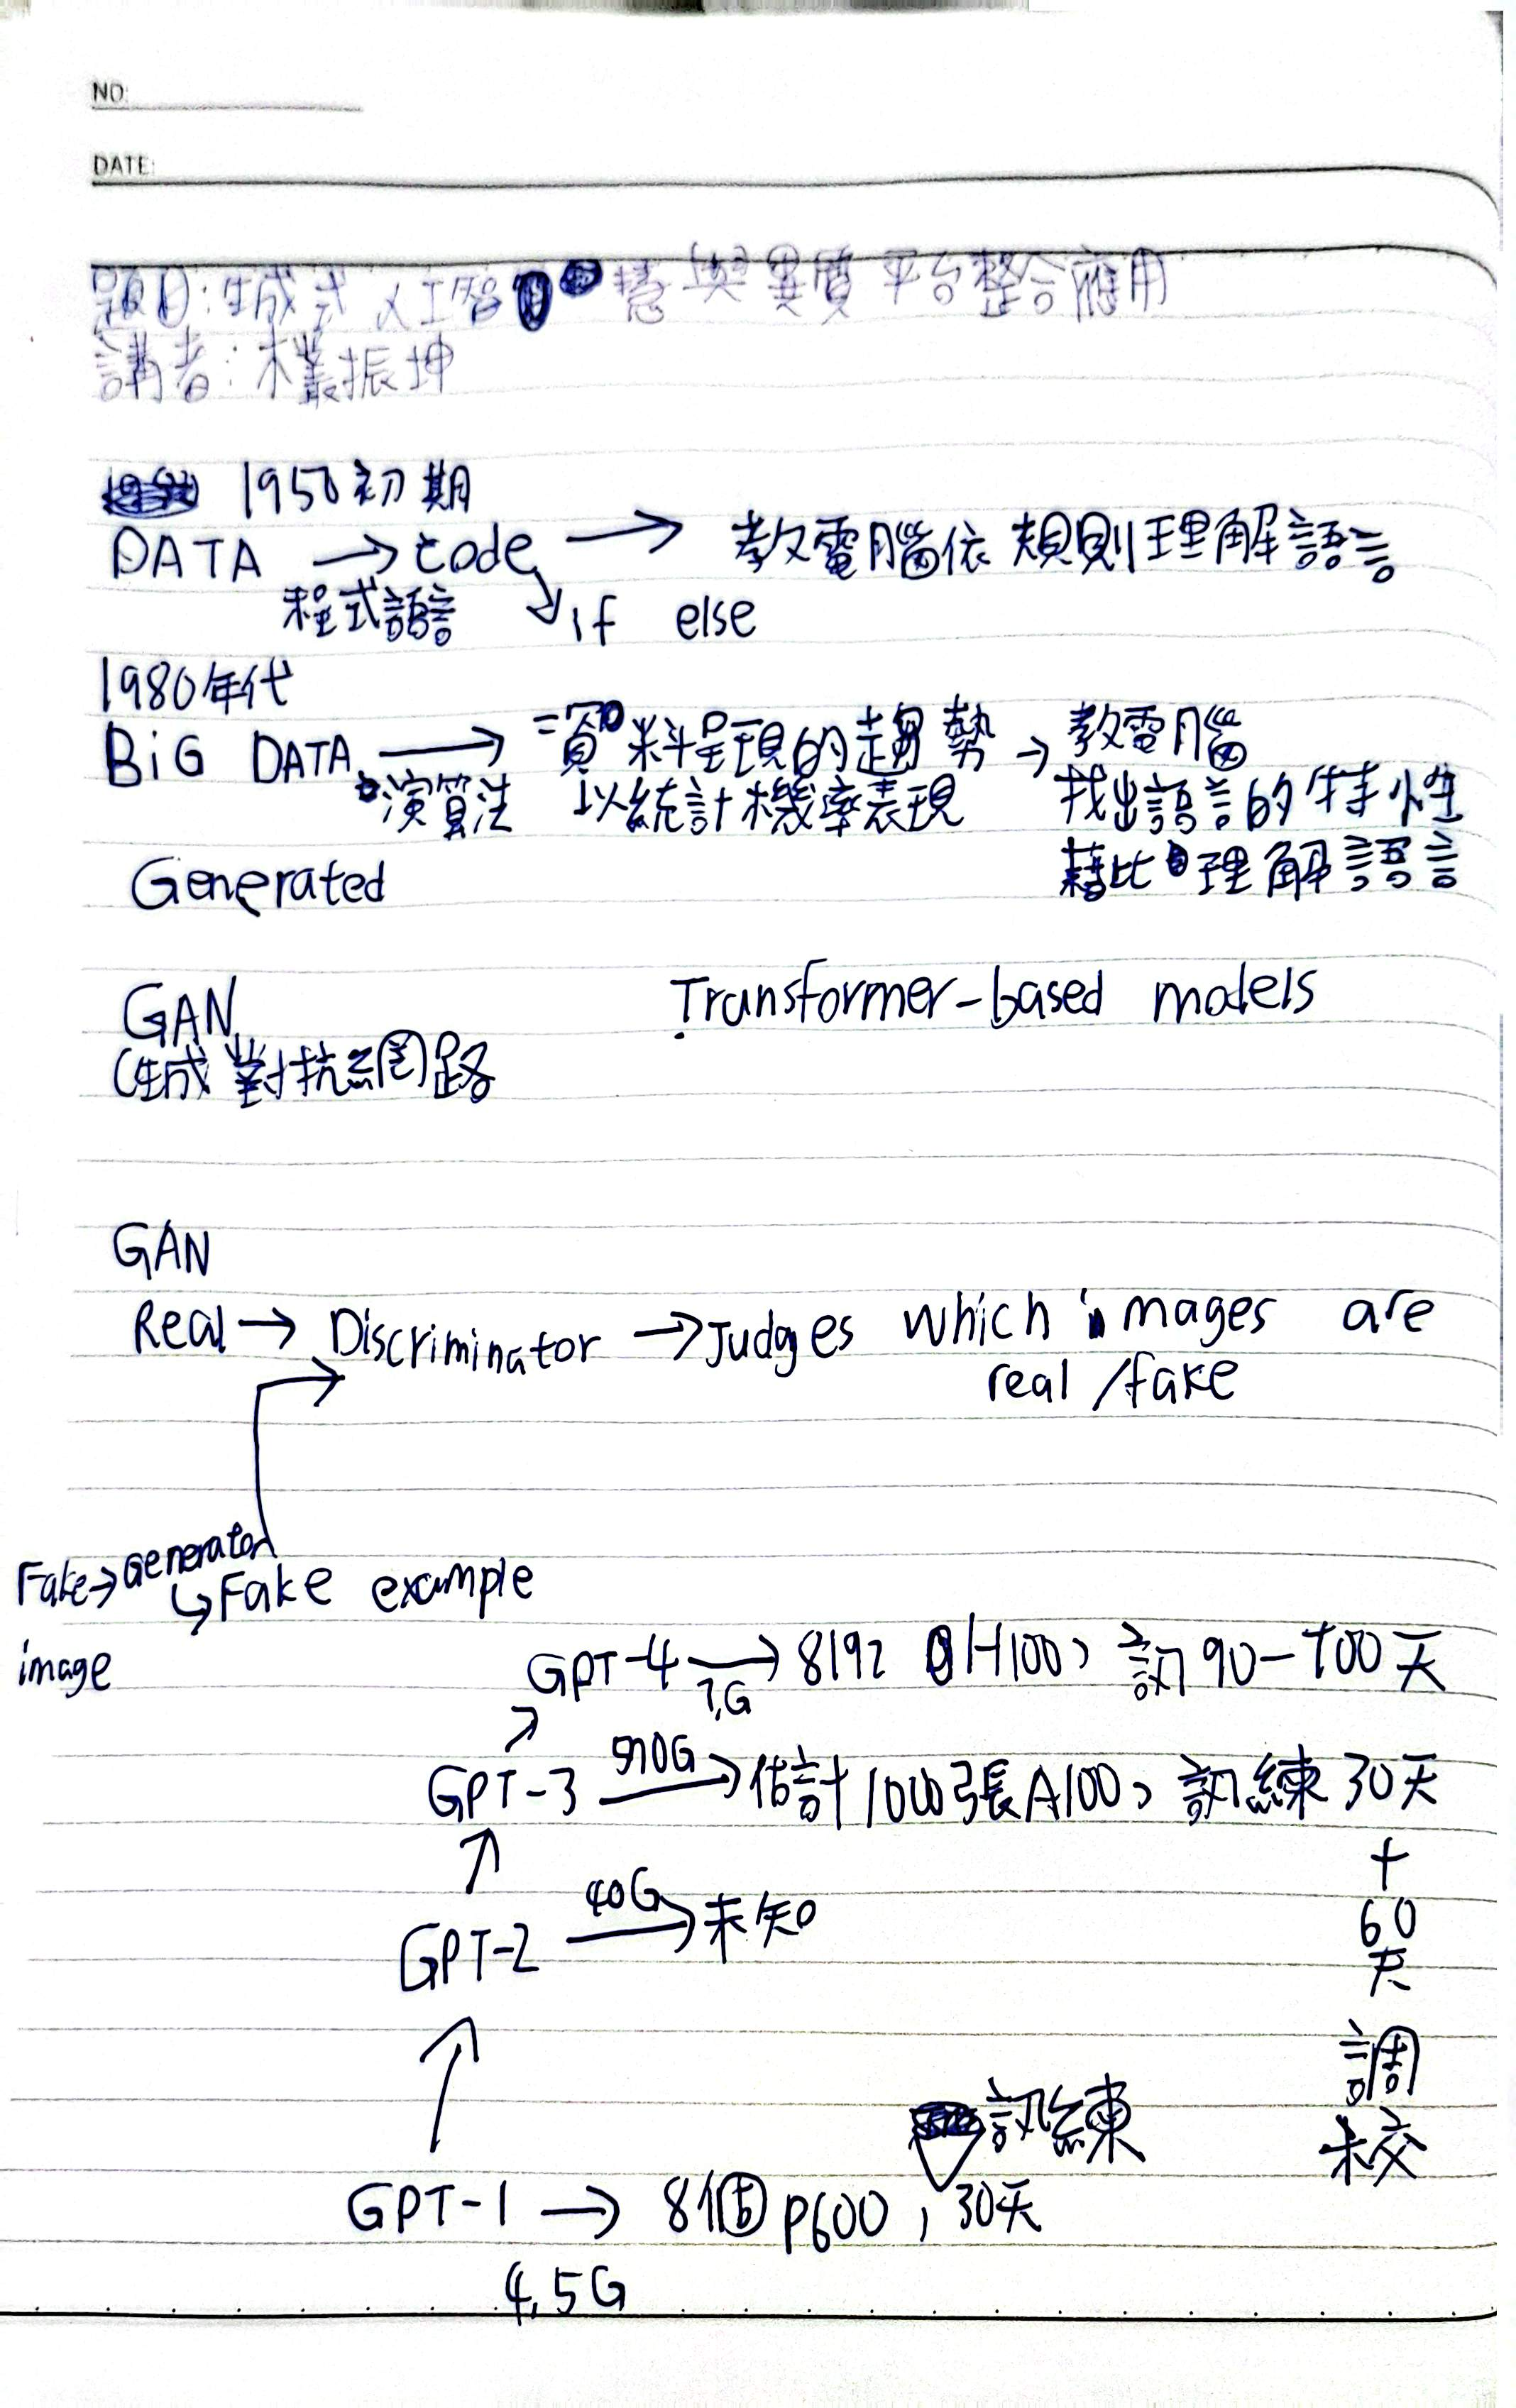 NO:
DATE:
題目:生成式人工智慧與異質平台整合應用
講者:振坤
1950初期
DATA → code → 教電腦依規則理解語言
程式語言 if else
1980年代
BiG DATA → 資料呈現的趨勢 → 教電腦
演算法 以統計機率表現 找出語言的特性
藉此理解語言
Generated
GAN Transformer-based models
(生成對抗網路
GAN
Real → Discriminator → Judges which images are
real /fake
Fake → Generator
↳ Fake example
image
GPT-4 → 8192 H100, 訓 90-100天
GPT-3 → 估計1000張A100, 訓練30天
570G
+
60
天
調
校
GPT-2 → 未知
40G
訓練
GPT-1 → 8個P600, 30天
4.5G